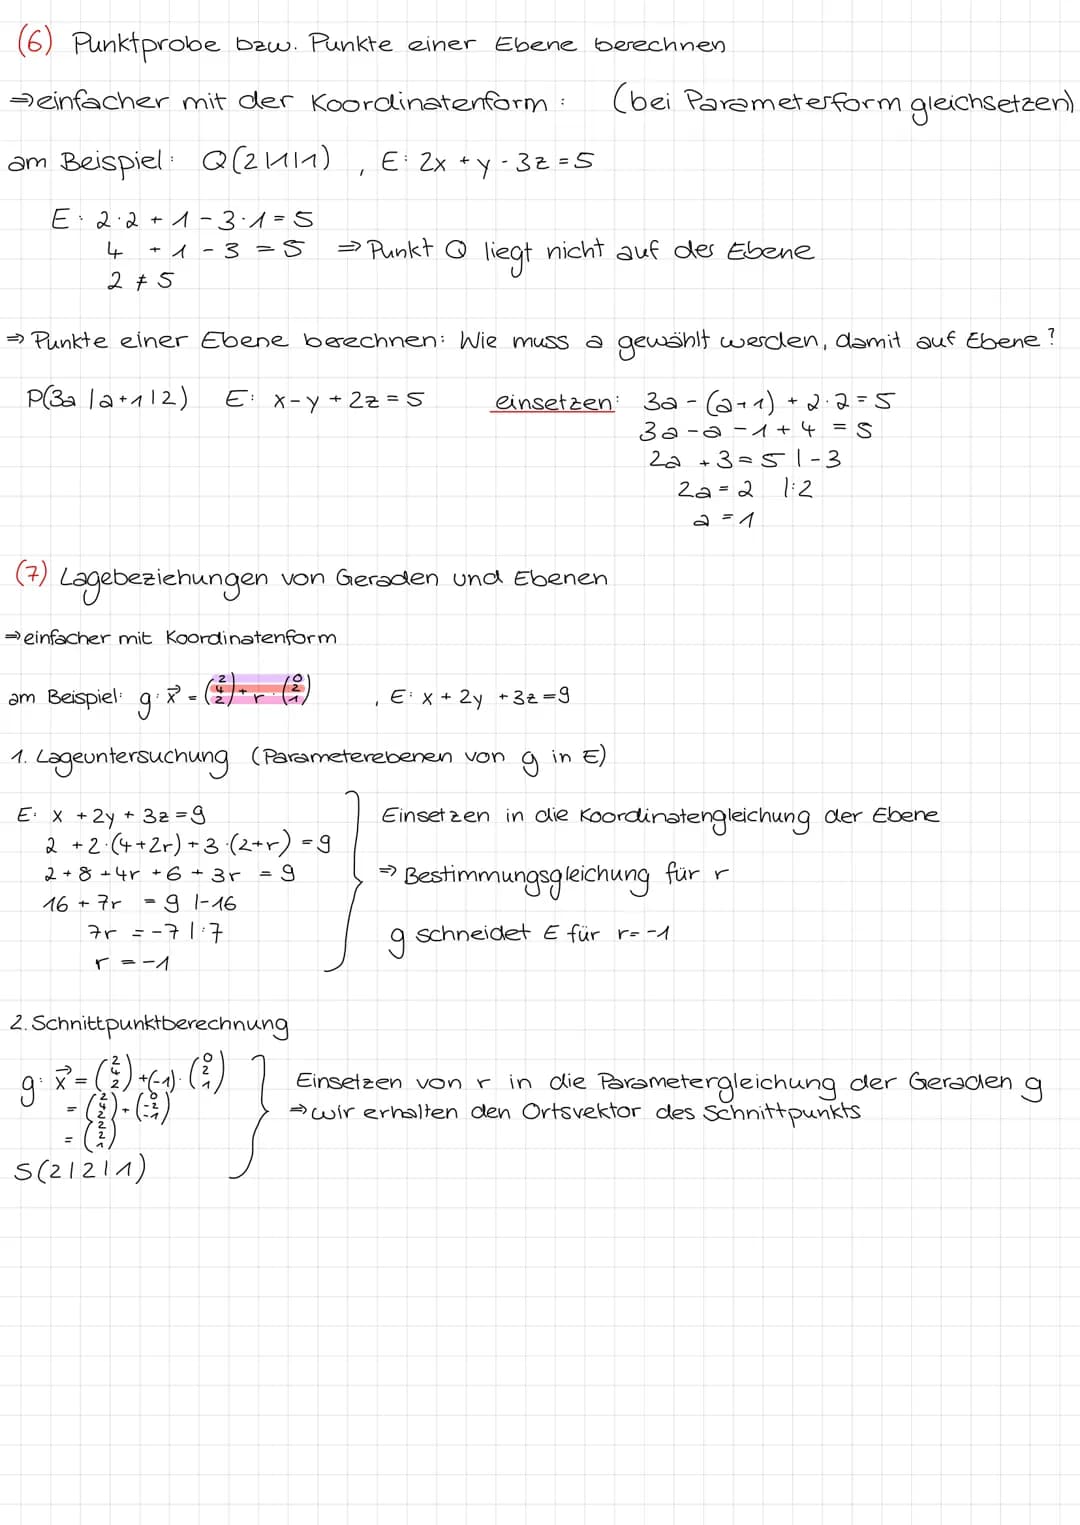 (6) Punktprobe bzw. Punkte einer Ebene berechnen
⇒ einfacher mit der Koordinatenform: (bei Parameterform gleichsetzen)
am Beispiel: Q(2|1|1) , E: 2x + y - 3z = 5
E: 2·2 + 1 - 3·1 = 5
4 + 1 - 3 = 5 ⇒ Punkt Q liegt nicht auf der Ebene
2 ≠ 5
⇒ Punkte einer Ebene berechnen: Wie muss a gewählt werden, damit auf Ebene?
P(3a|a+1|2) E: x - y + 2z = 5 einsetzen: 3a - (a+1) + 2·2 = 5
3a - a - 1 + 4 = 5
2a + 3 = 5 |-3
2a = 2 |:2
a = 1
(7) Lagebeziehungen von Geraden und Ebenen
⇒ einfacher mit Koordinatenform
am Beispiel: g: x⃗ = (2 4 2) + r · (0 2 1) , E: x + 2y + 3z = 9
1. Lageuntersuchung (Parameterebenen von g in E)
E: x + 2y + 3z = 9 Einsetzen in die Koordinatengleichung der Ebene
2 + 2·(4+2r) + 3·(2+r) = 9
2 + 8 + 4r + 6 + 3r = 9 ⇒ Bestimmungsgleichung für r
16 + 7r = 9 |-16
7r = -7 |:7 g schneidet E für r = -1
r = -1
2. Schnittpunktberechnung
g: x⃗ = (2 4 2) + (-1) · (0 2 1) Einsetzen von r in die Parametergleichung der Geraden g
= (2 4 2) + (0 -2 -1) ⇒ wir erhalten den Ortsvektor des Schnittpunkts
= (2 2 1)
S(2|2|1)